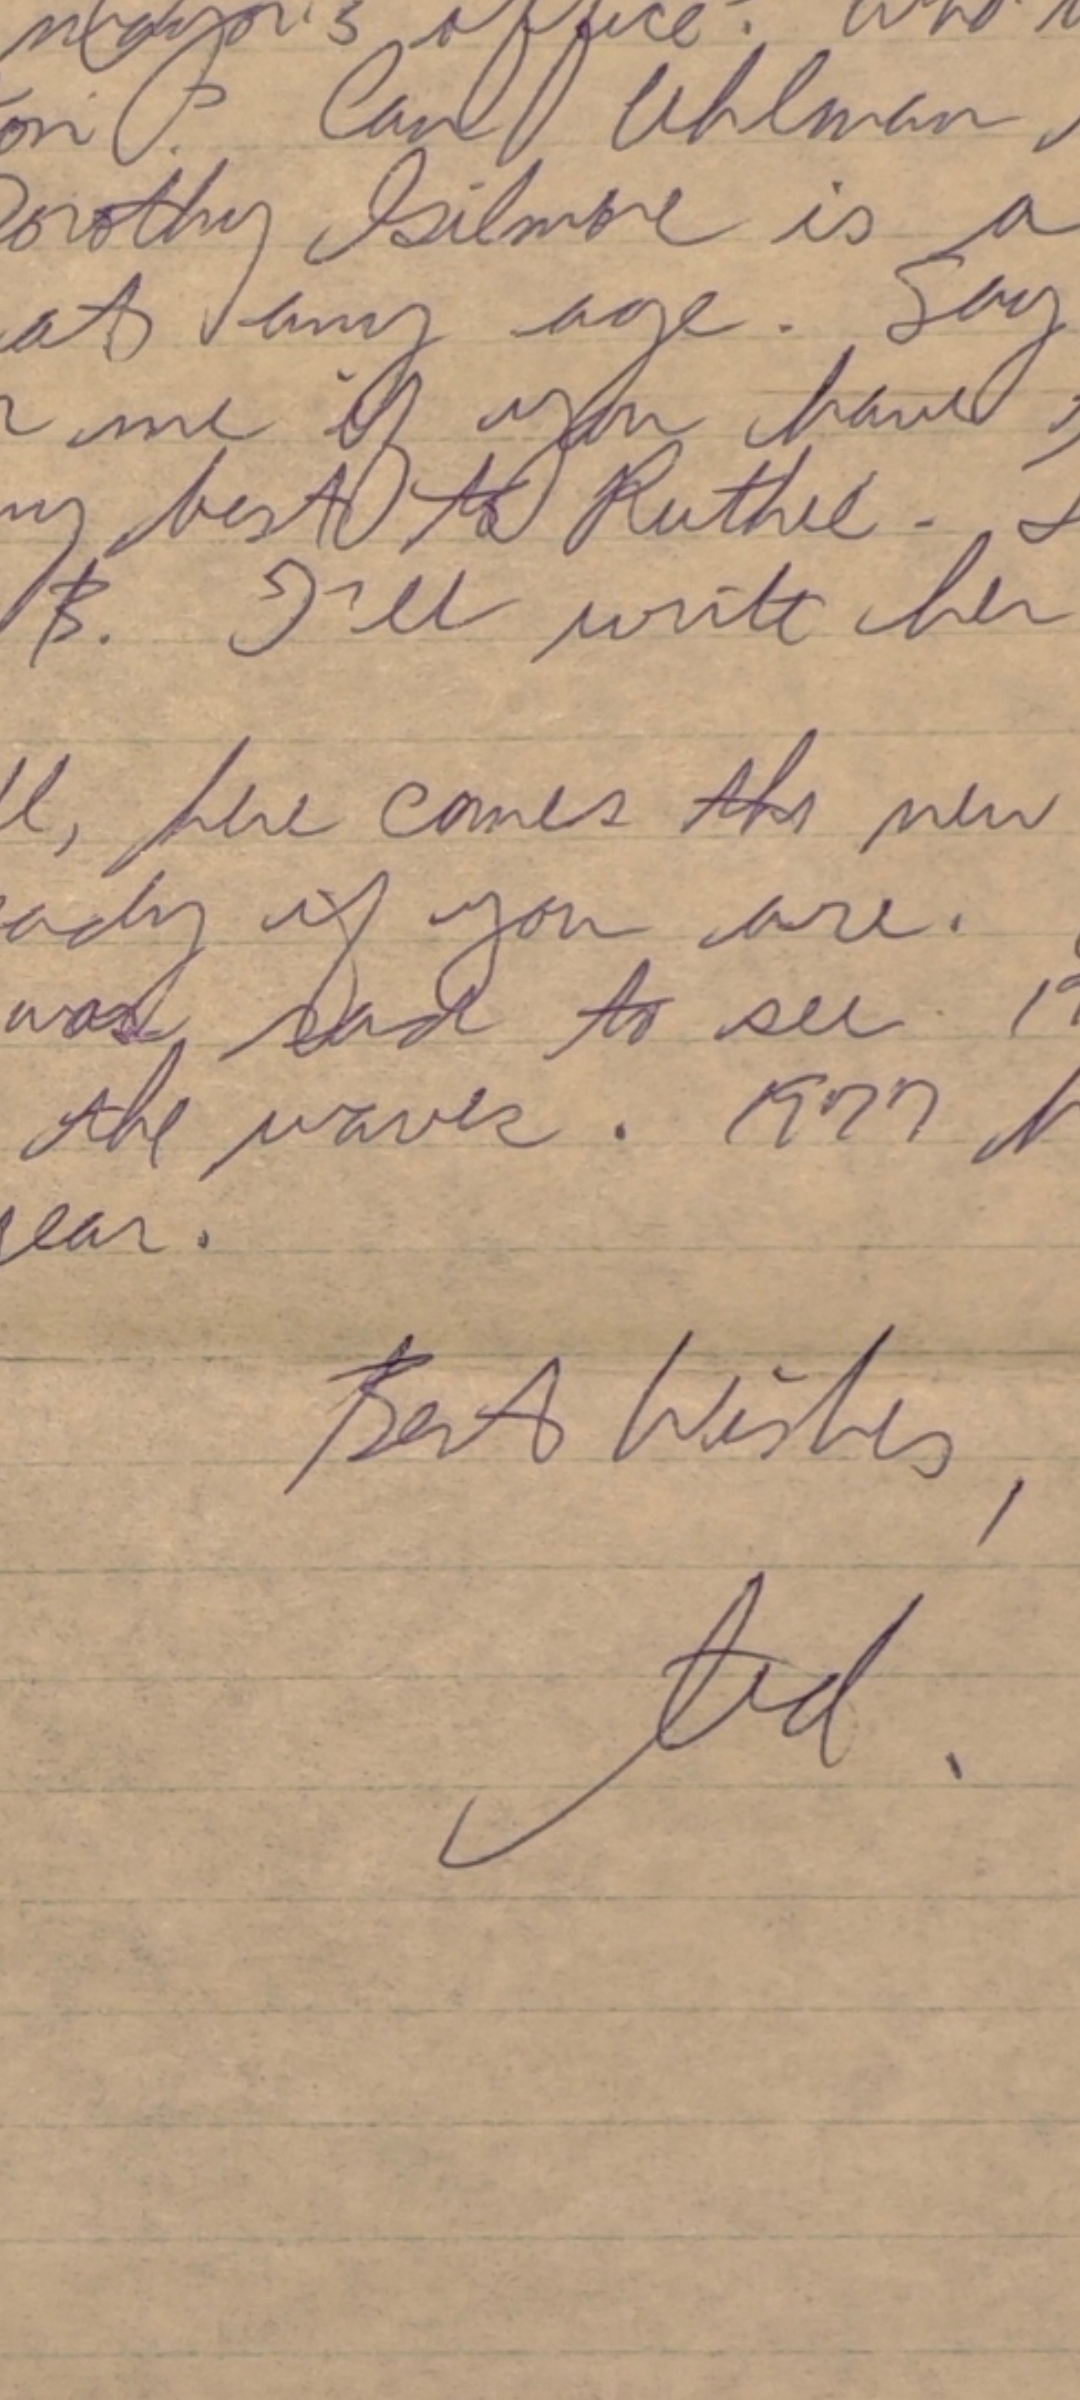 mayor's office? Who
on? Can Uhlman
Dorothy Gilmore is a
at any age. Say
me if you have
my best to Ruthie -
B. I'll write her
ll, here comes the new
eady if you are.
was sad to see 19
the waves. 1977 h
year.
Best Wishes,
ted.